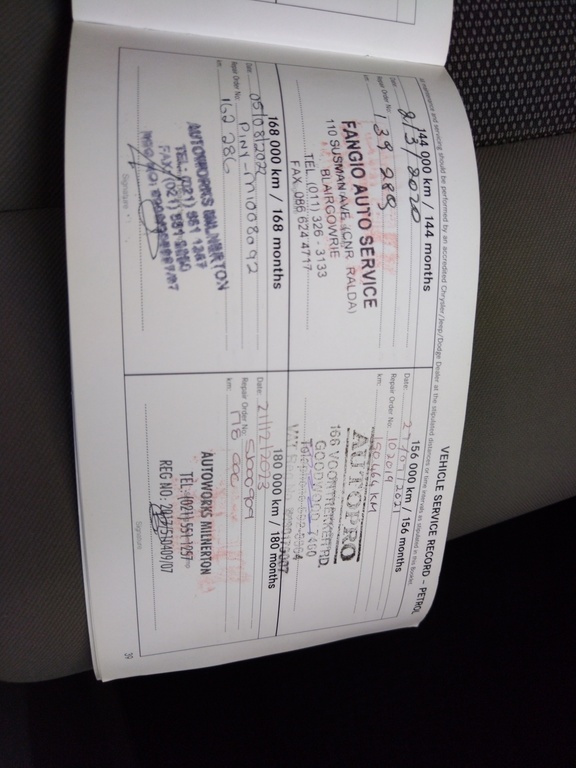 VEHICLE SERVICE RECORD - PETROL
All maintenance and servicing should be performed by an accredited Chrysler/Jeep/Dodge Dealer at the stipulated distances or time intervals as stipulated in this Booklet.
144 000 km / 144 months
Date: 9/3/2020
Repair Order No:
km: 139 289
FANGIO AUTO SERVICE
110 SUSMAN AVE (CNR RALDA)
BLAIRGOWRIE
TEL. (011) 326 - 3133
FAX. 086 624 4717
156 000 km / 156 months
Date: 27/07/2021
Repair Order No: 102019
km: 150464 KM
AUTOPRO
166 VOORTREKKER RD.
GOODWOOD 7460
168 000 km / 168 months
Date: 05/08/2022
Repair Order No: PINV-M1008092
km: 162 286
AUTOWORKS MILNERTON
TEL: (021) 551 1257
FAX: (021) 551
Signature
180 000 km / 180 months
Date: 21/12/2023
Repair Order No:
km: 178 000
AUTOWORKS MILNERTON
TEL: (021) 551-1257
REG NO: 2017/519409/07
Signature
39